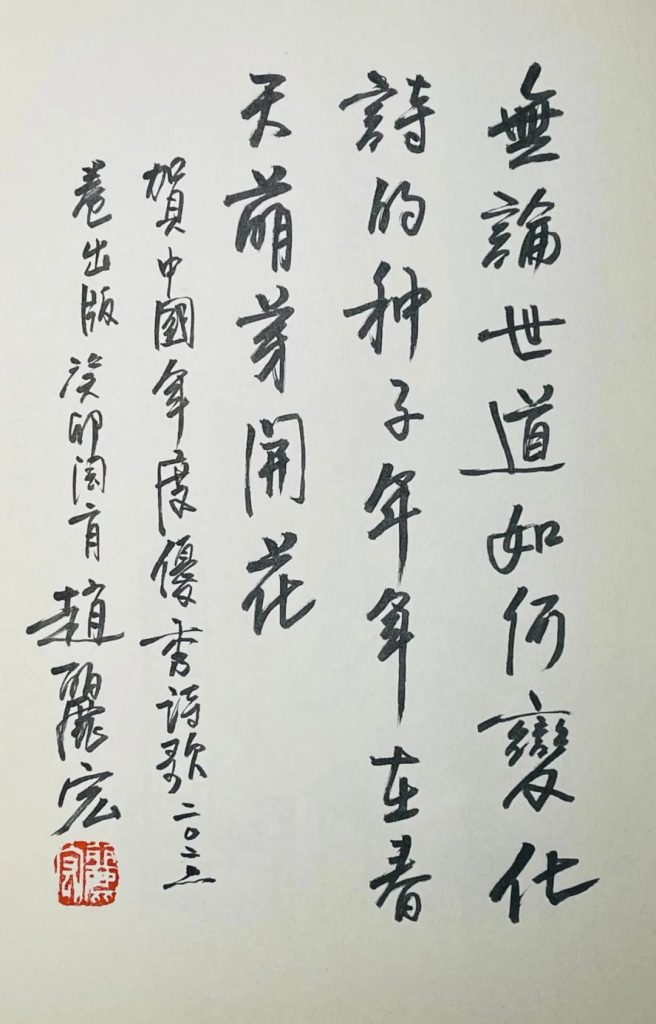 無論世道如何變化
詩的种子年年在春
天萌芽開花
賀中國年度優秀詩歌二〇二三
卷出版 癸卯閏月 趙麗宏
麗宏